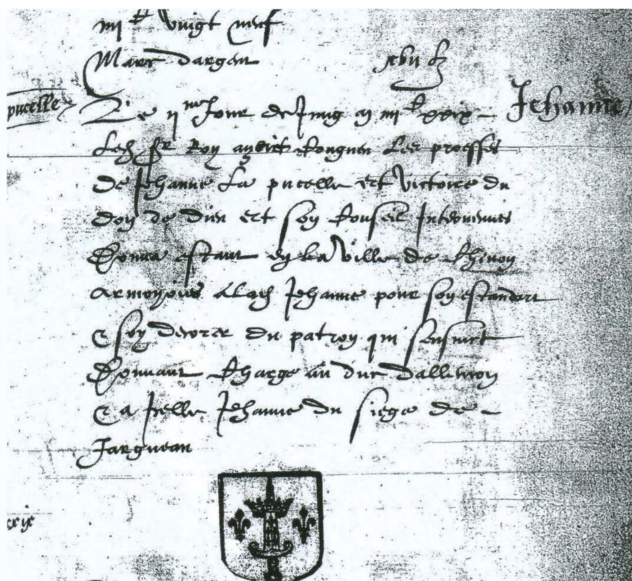 iiii c vingt neuf
Marc dargent xvii ℔
pucelle
Le ii me Jour de Jung m iiii c xxix - Jehanne
Led Sr Roy ayant congneu Les proesses
de Jehanne La pucelle et victoires du
don de dieu et son conseil Intervenues
donna estant en La ville de Chinon
armoyries a Lad Jehanne pour son estandart
& soy decorer du patron qui sensuict
donnant charge au duc dallencon
& a Icelle Jehanne du siege de -
Jargueau
xxix